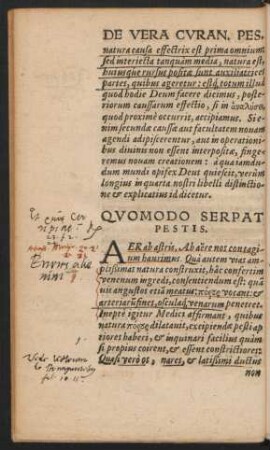 DE VERA CVRAN. PES.
natura causa effectrix est prima omnium,
sed interiecta tanquam media, natura est,
huiusque rursus positæ sunt auxiliatrices
partes, quibus ageretur: estque totum illud
quod hodie Deum facere dicimus, poste-
riorum caussarum effectio, si in
quod proxime occurrit, accipiamus. Si e-
nim secundæ caussæ aut facultatem nouam
agendi adipiscerentur, aut in operationi-
bus diuinis non essent interpositæ, finge-
remus nouam creationem: à qua tamdu-
dum mundi opifex Deus quieuit, verùm
longius in quarta nostri libelli distinctio-
ne & explicatius id dicetur.
QVOMODO SERPAT
PESTIS.
AER ab astris, Ab aëre nos contagium
haurimus. Quâ autem vias am-
plissimas natura construxit, hâc confertim
venenum ingredi, consentiendum est: quâ
viis angustos etiã meatus πόρους vocant: &
arteriarũ fines, oscula venarum penetret.
Ineptè igitur Medici affirmant, quibus
natura πόρους dilatauit, excipiendæ pesti ap-
tiores habere, & inquinari facilius quàm
si propius coirent, & essent constrictiores:
Quasi verò os, nares, & latissimi ductus
non